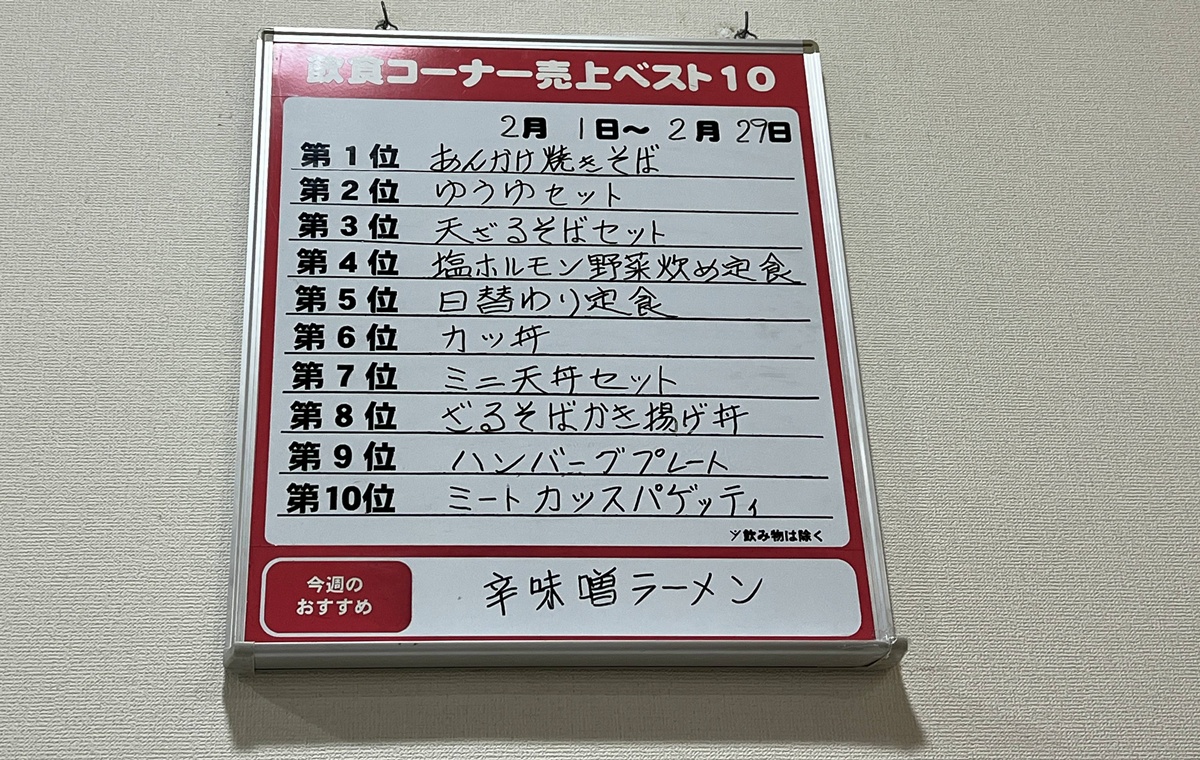 飲食コーナー売上ベスト10
2月 1日～2月 29日
第1位 あんかけ焼きそば
第2位 ゆうゆセット
第3位 天ざるそばセット
第4位 塩ホルモン野菜炒め定食
第5位 日替わり定食
第6位 カツ丼
第7位 ミニ天丼セット
第8位 ざるそばかき揚げ丼
第9位 ハンバーグプレート
第10位 ミートカツスパゲッティ
※飲み物は除く
今週の
おすすめ
辛味噌ラーメン